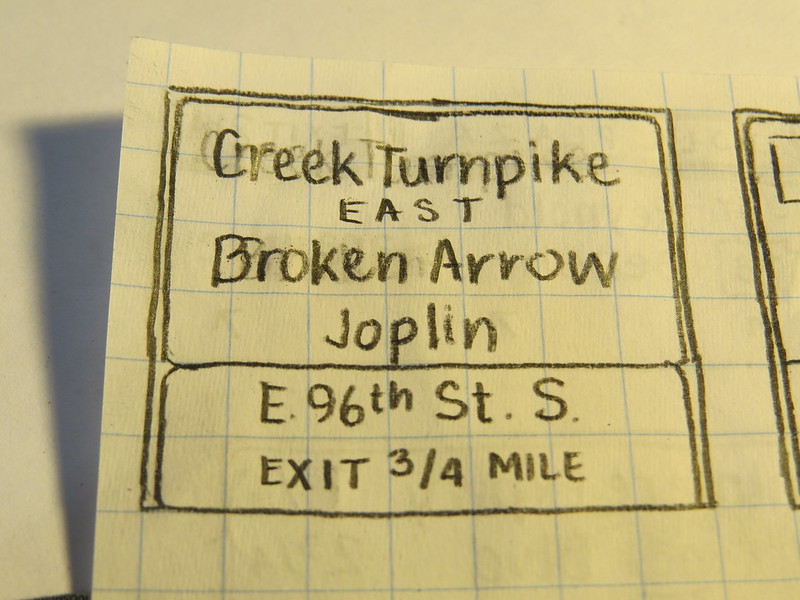 Creek Turnpike
EAST
Broken Arrow
Joplin
E. 96th St. S.
EXIT 3/4 MILE